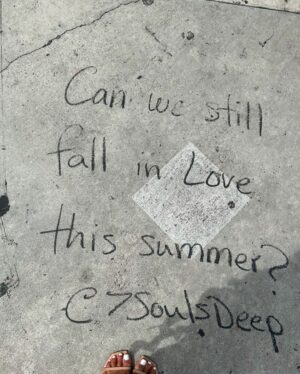 Can we still
fall in Love
this summer?
C7SoulsDeep